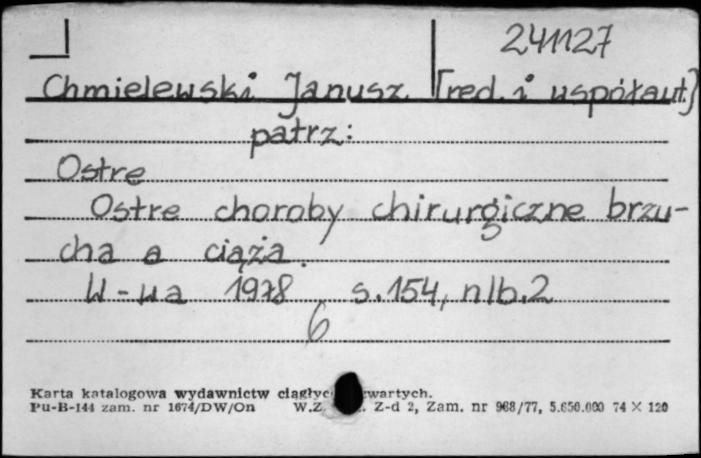 241127
Chmielewski Janusz [red. i współaut.]
patrz:
Ostre
Ostre choroby chirurgiczne brzu-
cha a ciąża.
W-wa 1978 s.154, nlb.2
6
Karta katalogowa wydawnictw ciągłyc wartych.
Pu-B-144 zam. nr 1674/DW/On W.Z Z-d 2, Zam. nr 968/77, 5.650.000 74 × 120